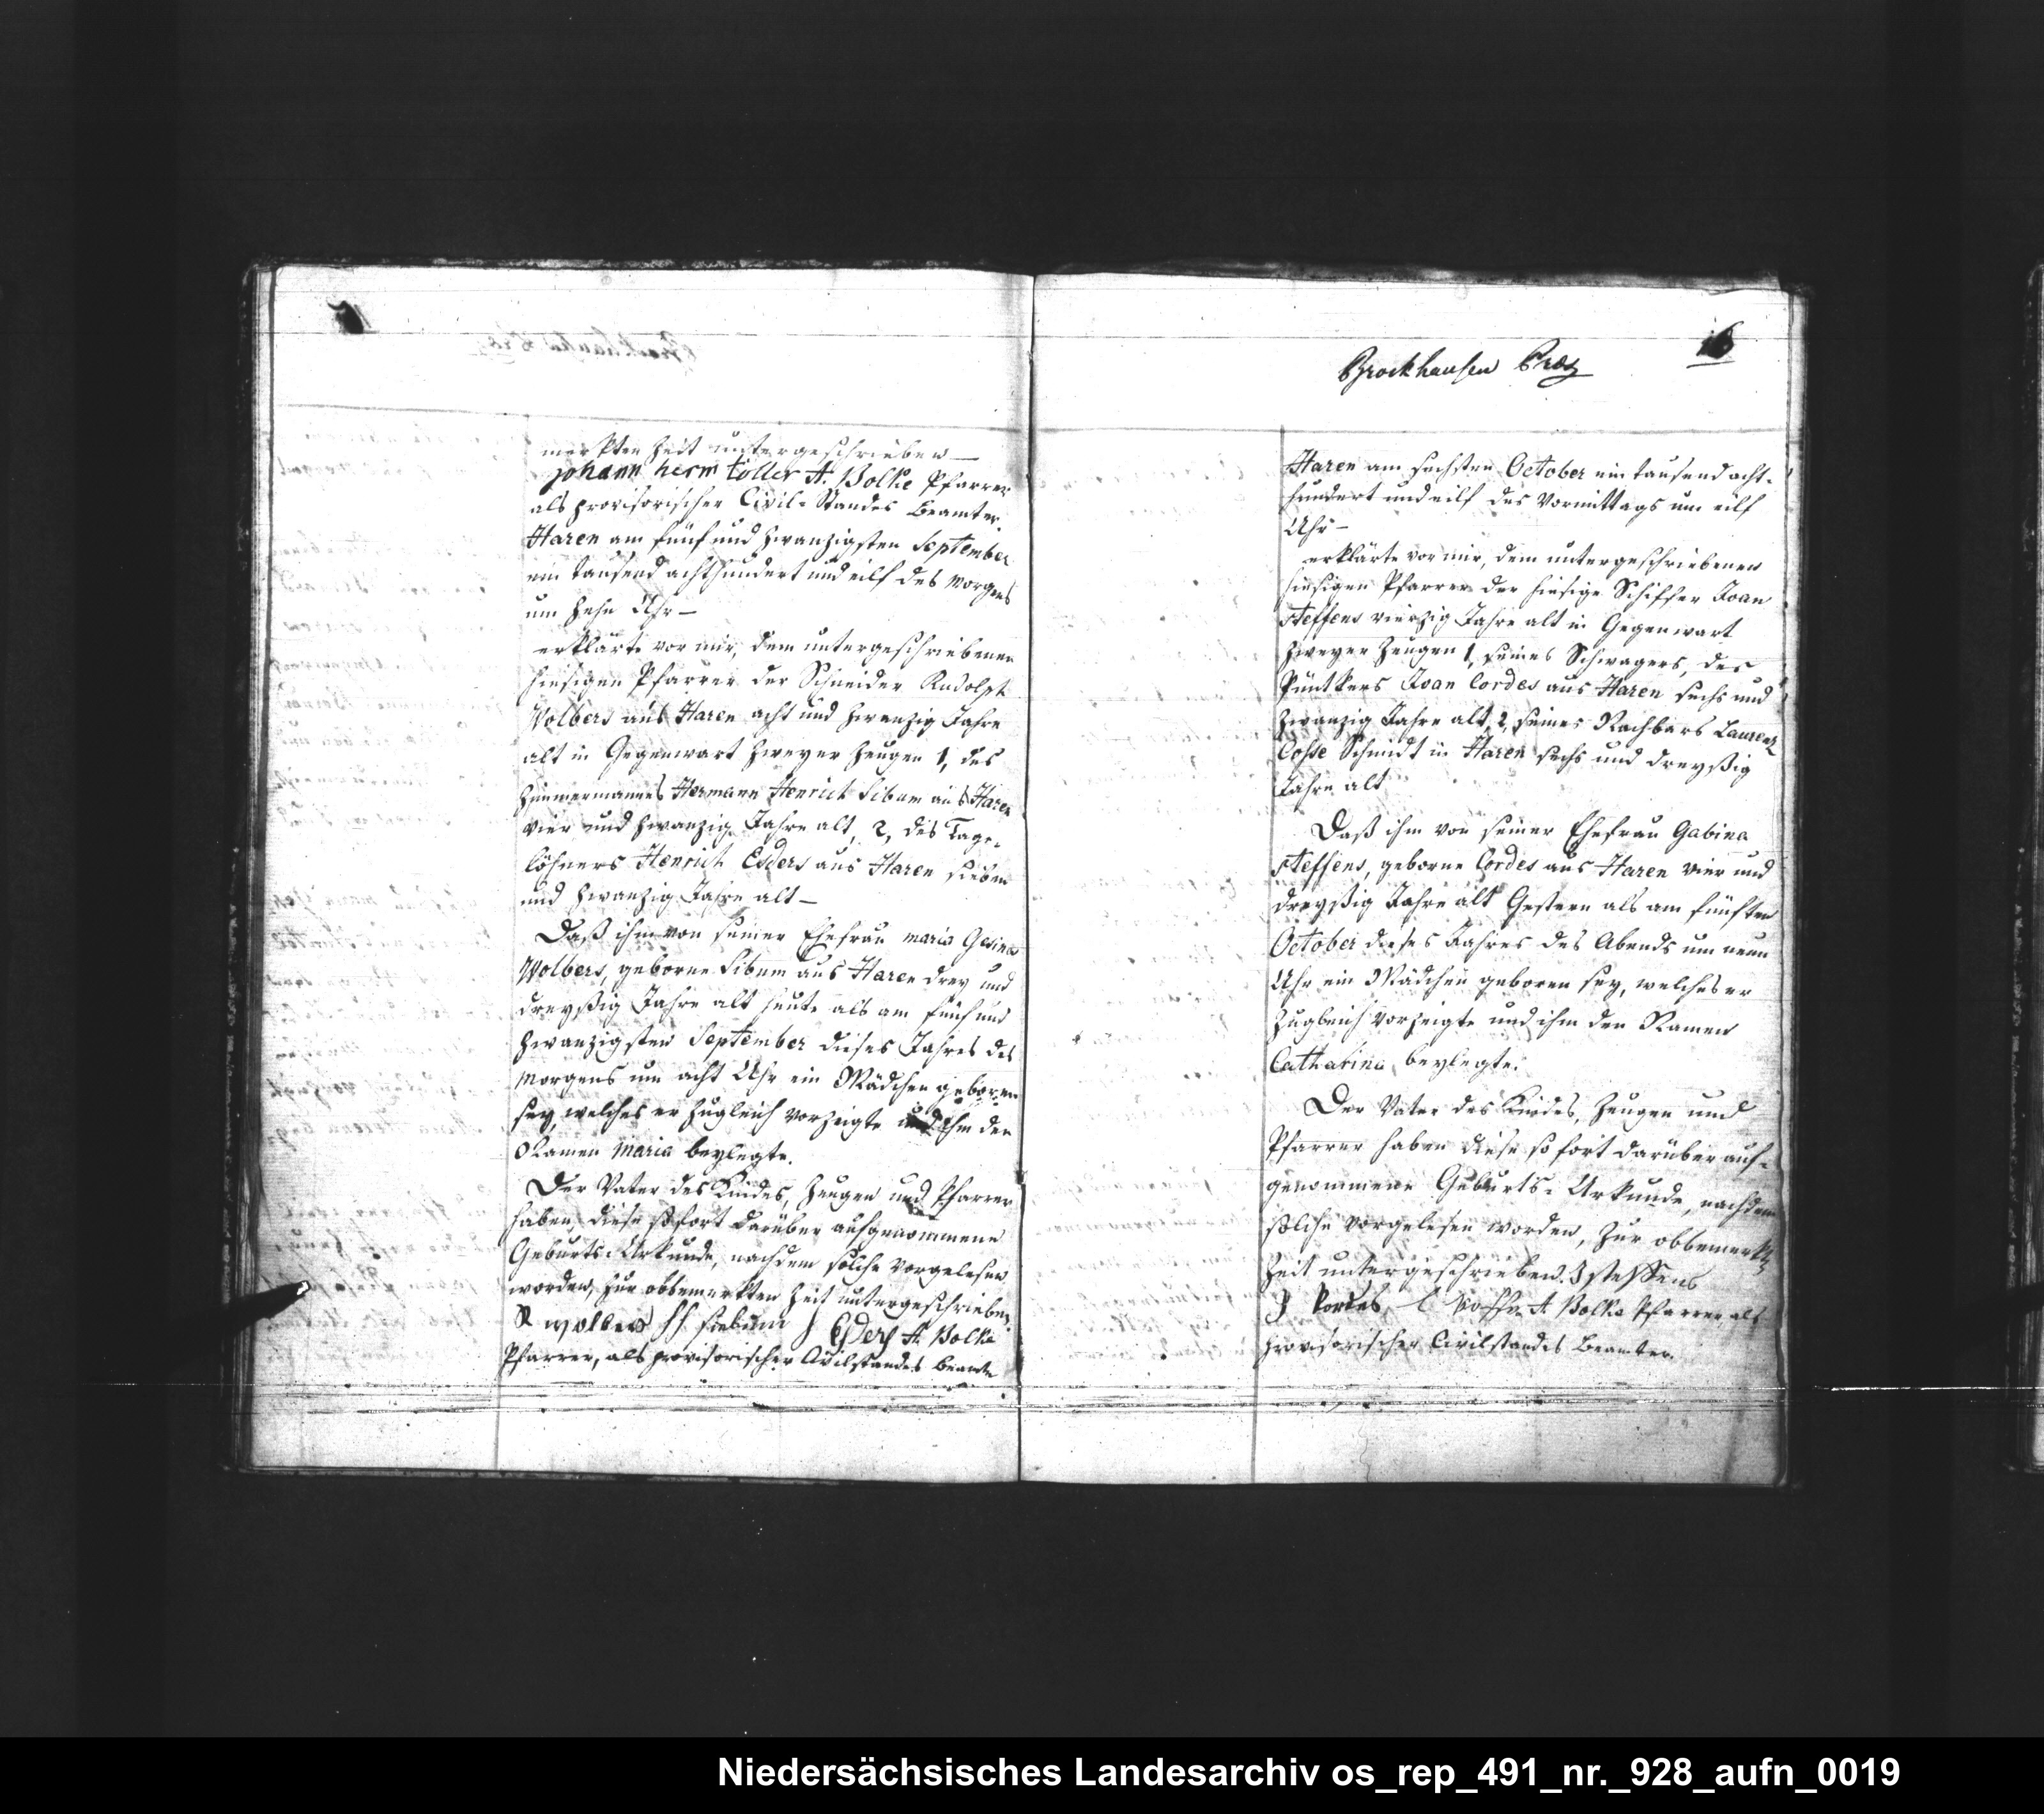 merkten Zeit untergeschrieben —
Johann herm töller A. Bolke Pfarrer
als provisorischer Civil-Standes Beamter.
Haren am fünf und zwanzigsten September
ein tausend achthundert und eilf des Morgens
um zehn Uhr —
erklärte vor mir, dem untergeschriebenen
hiesigen Pfarrer der Schneider Rudolph
Wolbers aus Haren acht und zwanzig Jahre
alt in Gegenwart zweyer Zeugen 1, des
Zimmermannes Hermann Henrich Sibum aus Haren
vier und zwanzig Jahre alt, 2, des Tage-
löhners Henrich Esders aus Haren sieben
und zwanzig Jahre alt —
Daß ihm von seiner Ehefrau Maria Gesina
Wolbers, geborne Sibum aus Haren drey und
dreyßig Jahre alt heute als am fünf und
zwanzigsten September dieses Jahres des
Morgens um acht Uhr ein Mädchen geboren
sey, welches er zugleich vorzeigte und ihm den
Namen Maria beylegte.
Der Vater des Kindes, Zeugen und Pfarrer
haben diese sofort darüber aufgenommene
Geburts-Urkunde, nachdem solche vorgelesen
worden, zur obbemerkten Zeit untergeschrieben.
R wolbers HH siebum J Esders A. Bolke
Pfarrer, als provisorischer Civilstandes Beamte
16
Brockhausen
Haren am sechsten October ein tausend acht-
hundert und eilf des Vormittags um eilf
Uhr —
erklärte vor mir, dem untergeschriebenen
hiesigen Pfarrer der hiesige Schiffer Joan
Steffens vierzig Jahre alt in Gegenwart
zweyer Zeugen 1, seines Schwagers, des
Püntkers Joan Cordes aus Haren sechs und
zwanzig Jahre alt, 2, seines Nachbars Laurenz
Cosse Schmidt in Haren sechs und dreyßig
Jahre alt
Daß ihm von seiner Ehefrau Gabina
Steffens, geborne Cordes aus Haren vier und
dreyßig Jahre alt Gestern als am fünften
October dieses Jahres des Abends um neun
Uhr ein Mädchen geboren sey, welches er
zugleich vorzeigte und ihm den Namen
Catharina beylegte.
Der Vater des Kindes, Zeugen und
Pfarrer haben diese sofort darüber auf-
genommene Geburts-Urkunde, nachdem
solche vorgelesen worden, zur obbemerkten
Zeit untergeschrieben. J steffens
J Kordes L Kosse A Bolke Pfarrer als
provisorischer Civilstandes Beamter.
Niedersächsisches Landesarchiv os_rep_491_nr._928_aufn_0019